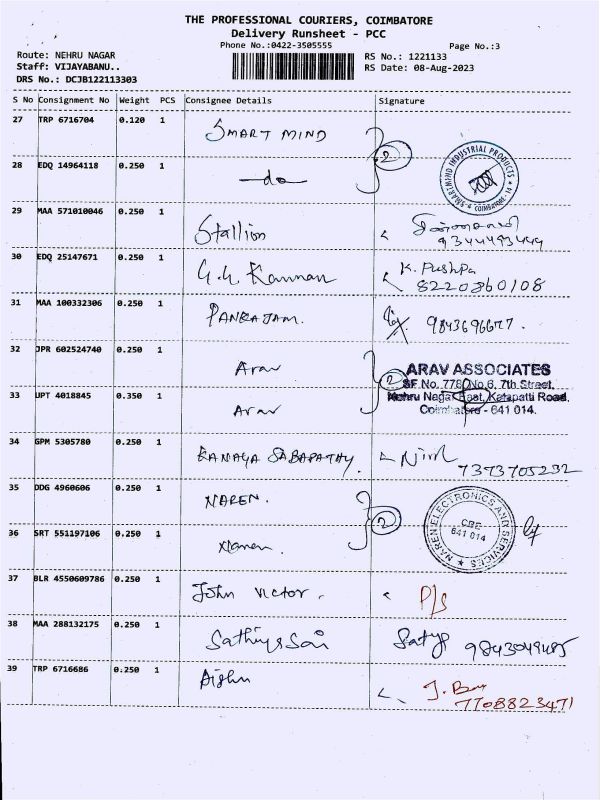 THE PROFESSIONAL COURIERS, COIMBATORE
Delivery Runsheet - PCC
Phone No.:0422-3505555 Page No.:3
Route: NEHRU NAGAR RS No.: 1221133
Staff: VIJAYABANU.. RS Date: 08-Aug-2023
DRS No.: DCJB122113303
S No Consignment No Weight PCS Consignee Details Signature
27 TRP 6716704 0.120 1 SMART MIND 2
SMARTMIND INDUSTRIAL PRODUCTS
COIMBATORE
28 EDQ 14964118 0.250 1 —do
29 MAA 571010046 0.250 1 Stallion
9344493444
30 EDQ 25147671 0.250 1 G.G Kannan K. Pushpa
8220860108
31 MAA 100332306 0.250 1 PANKAJAM. 9843696677.
32 JPR 602524740 0.250 1 Arav 2
ARAV ASSOCIATES
SF.No. 778, No.6, 7th Street,
Nehru Nagar East, Kalapatti Road,
Coimbatore - 641 014.
33 UPT 4018845 0.350 1 Arav
34 GPM 5305780 0.250 1 KANAGA SABAPATHY.
7373705232
35 DDG 4960606 0.250 1 NAREN. 2
NAREN ELECTRONICS AND SERVICES
CBE
641 014
36 SRT 551197106 0.250 1 Naren.
37 BLR 4550609786 0.250 1 John Victor. P/s
38 MAA 288132175 0.250 1 Sathya Sai Satya 9843049485
39 TRP 6716686 0.250 1 Aishu
7708823471